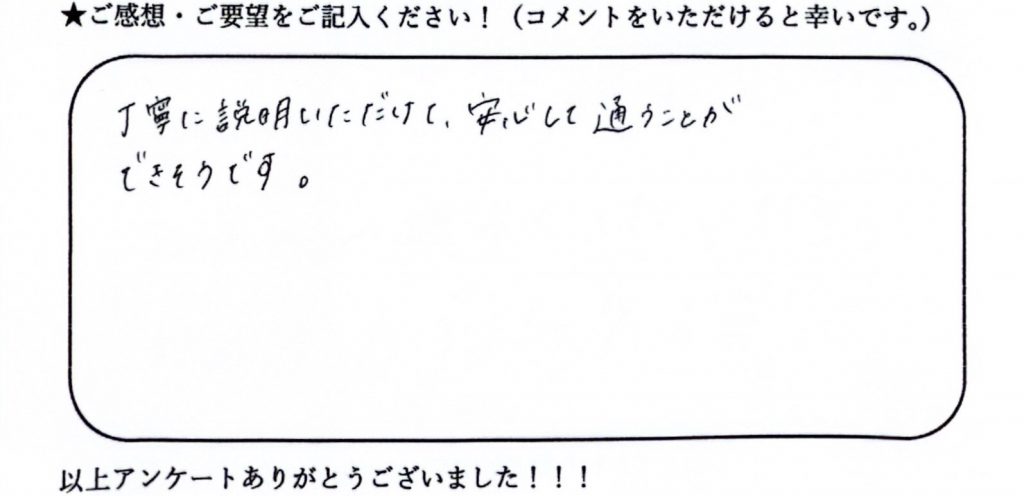 ★ご感想・ご要望をご記入ください！（コメントをいただけると幸いです。）
丁寧に説明いただけて、安心して通うことが
できそうです。
以上アンケートありがとうございました！！！